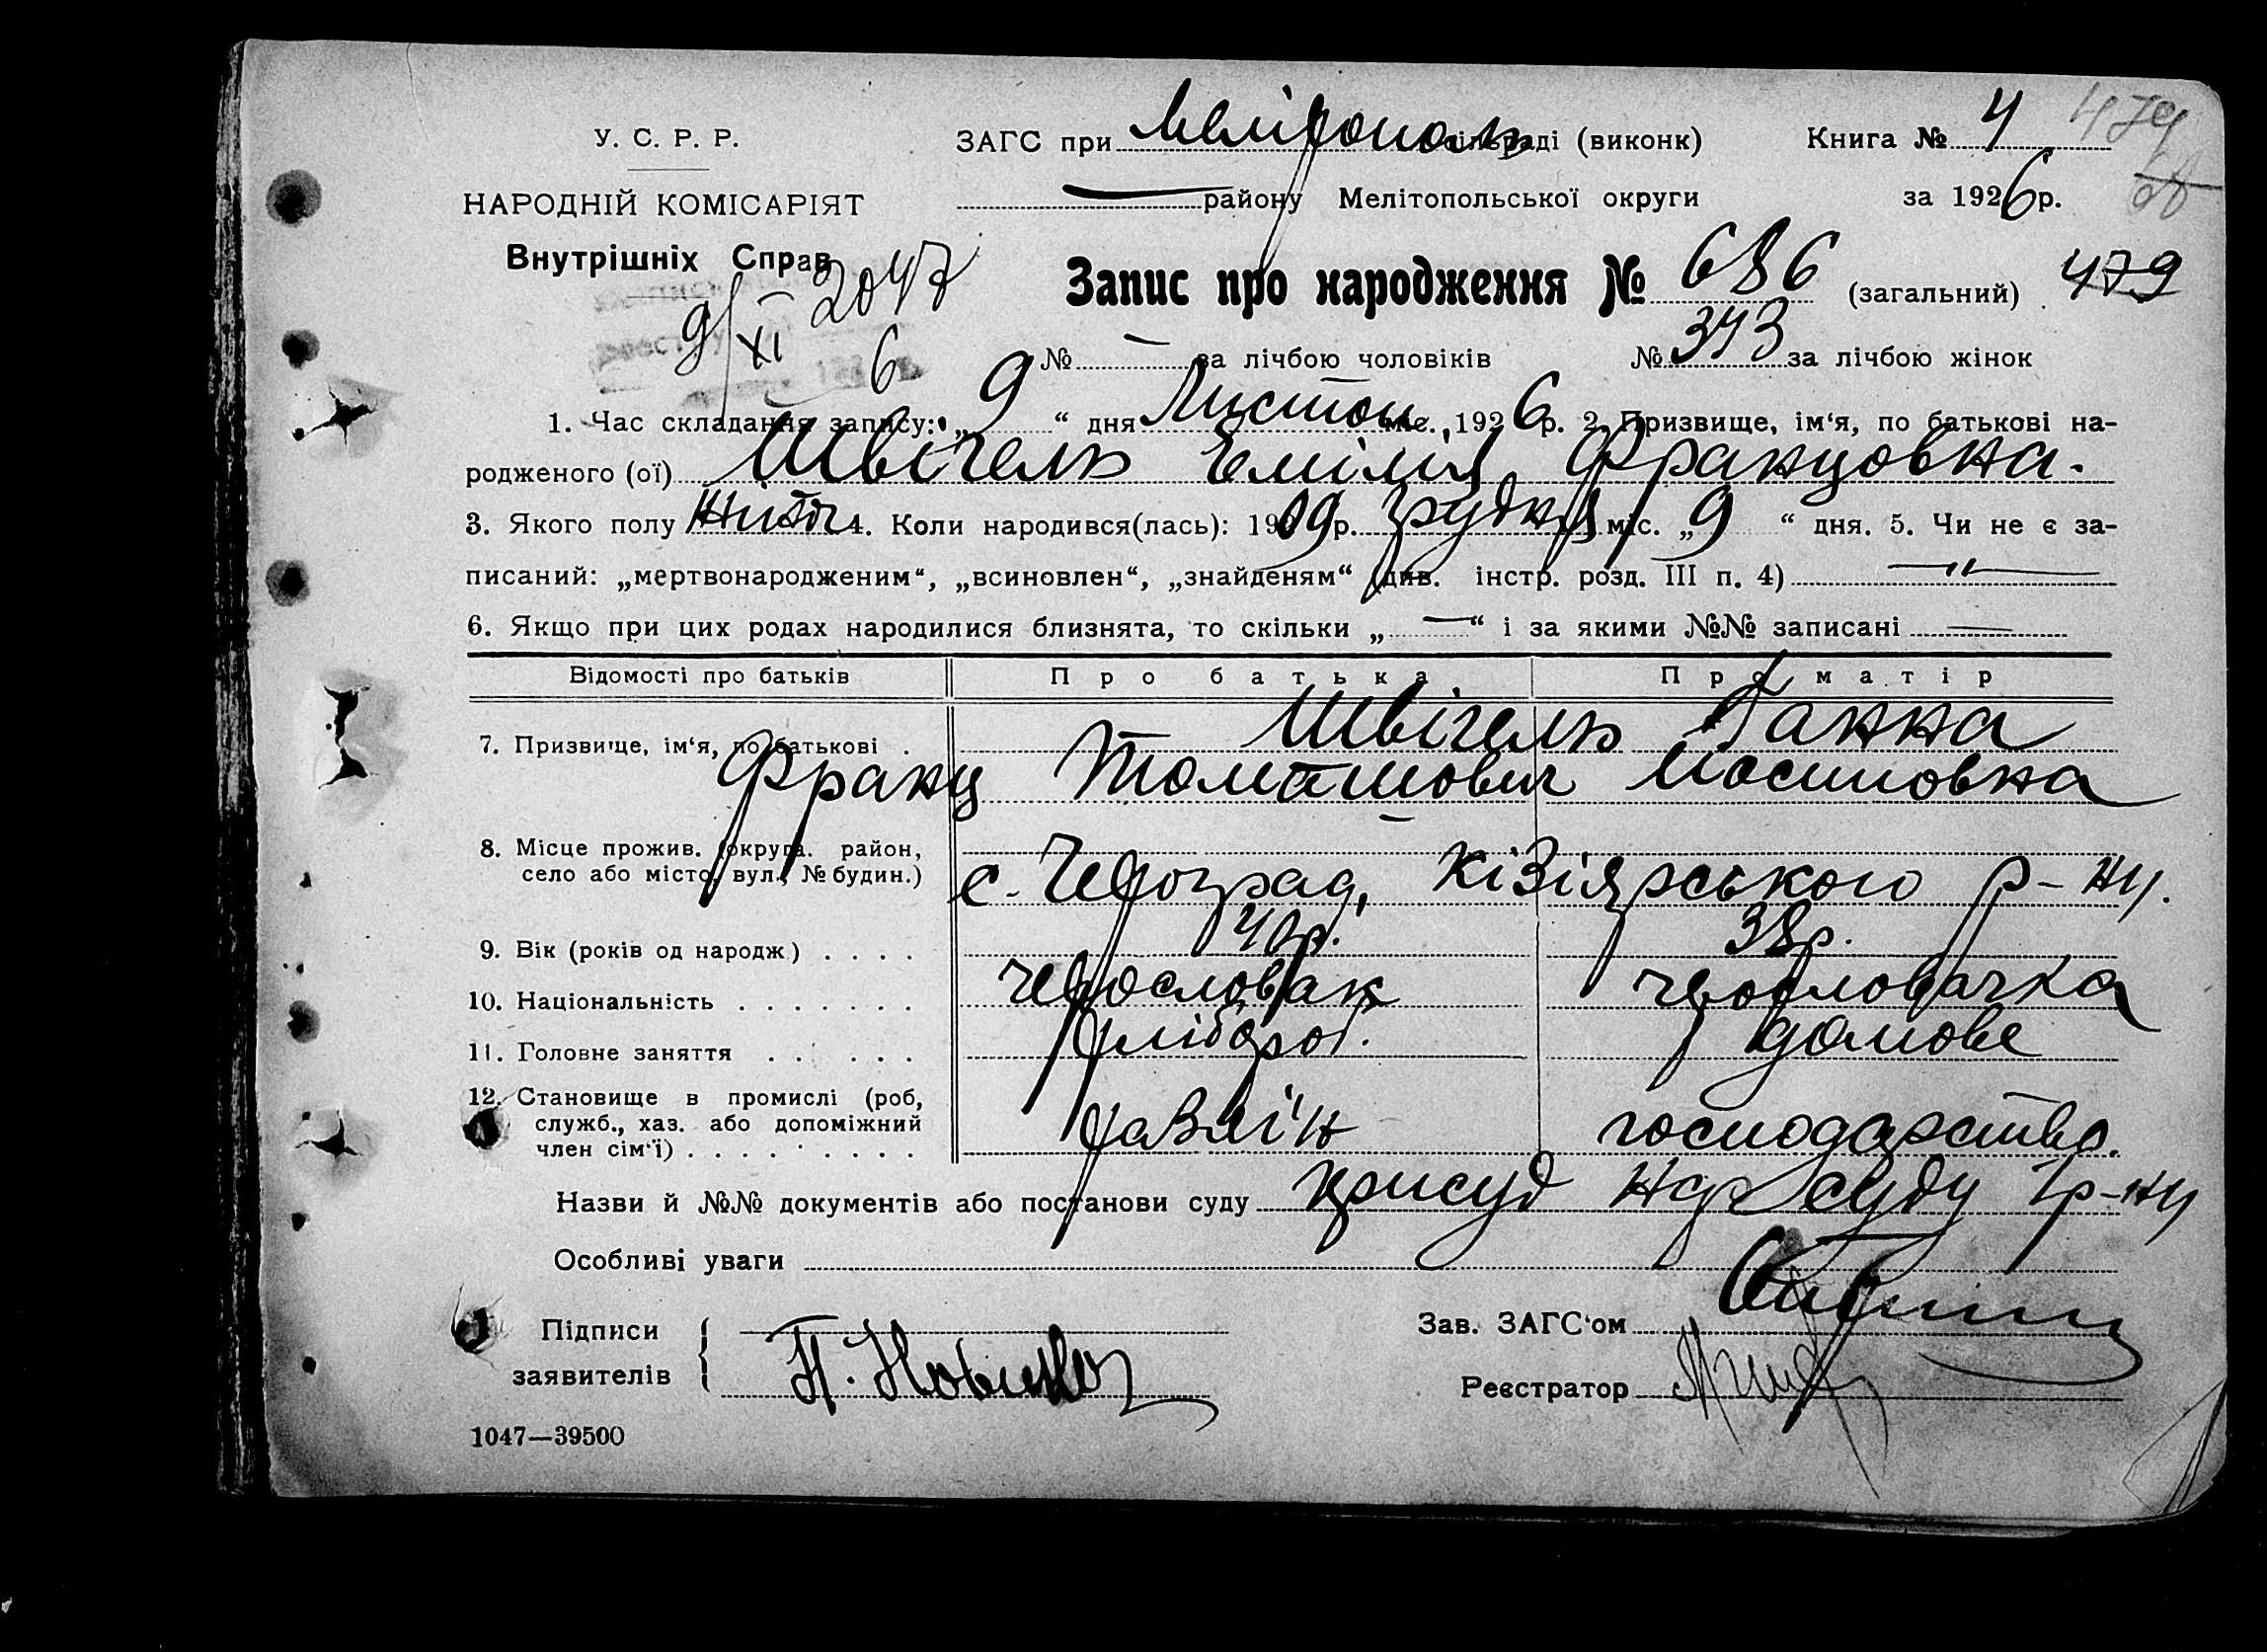 У. С. Р. Р.
НАРОДНІЙ КОМІСАРІЯТ
Внутрішніх Справ
9/XI 2047
6
ЗАГС при Мелітополь сільраді (виконк) Книга № 4 479
28
— району Мелітопольської округи за 1926 р.
Запис про народження № 686 (загальний) . 479
№ — за лічбою чоловіків № 343 за лічбою жінок
1. Час складання запису: „ 9 “ дня Листоп міс. 1926 р. 2. Призвище, ім‘я, по батькові на-
родженого (ої) Швігель Емілія Францовна.
3. Якого полу жіноч 4. Коли народився(лась): 1909 р. грудня міс. „ 9 “ дня. 5. Чи не є за-
писаний: „мертвонародженим“, „всиновлен“, „знайденям“ (див. інстр. розд. III п. 4) — " —
6. Якщо при цих родах народилися близнята, то скільки „ — “ і за якими №№ записані —
Відомості про батьків Про батька Про матір
7. Призвище, ім‘я, по батькові . Швігель Ганна
Франц Томашович Йосиповна
8. Місце прожив. (округа. район,
село або місто, вул., № будин.) с. Чехоград, Кізіярського р-ну.
9. Вік (років од народж) . . . . 40р. 38р.
10. Національність . . . . . . . чехословак чехословачка
11. Головне заняття . . . . . . хлібороб. домове
12. Становище в промислі (роб,
служб., хаз. або допоміжний
член сім‘ї) . . . . . . . . . хазяїн господарство.
Назви й №№ документів або постанови суду присуд Нарсуду 1 р-ну
Особливі уваги
Підписи
заявителів
Зав. ЗАГС‘ом
Реєстратор
1047—39500